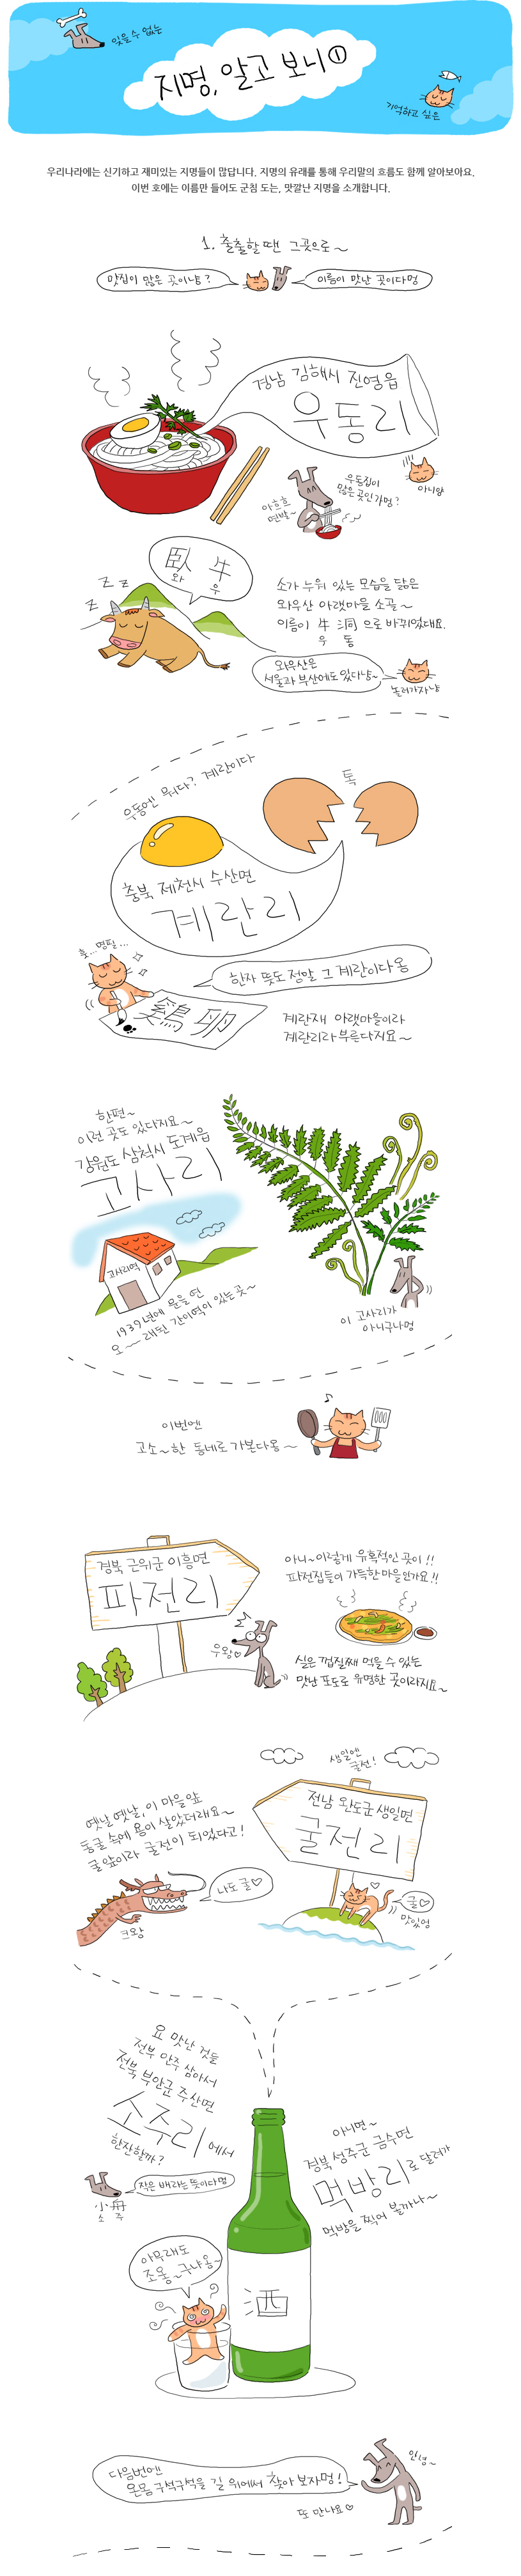 잊을 수 없는
지명, 알고 보니①
기억하고 싶은
우리나라에는 신기하고 재미있는 지명들이 많답니다. 지명의 유래를 통해 우리말의 흐름도 함께 알아보아요.
이번 호에는 이름만 들어도 군침 도는, 맛깔난 지명을 소개합니다.
1. 출출할 땐 그곳으로~
맛집이 많은 곳이냥?
이름이 맛난 곳이다멍
경남 김해시 진영읍
우동리
아흐흐
면발~
우동집이
많은 곳인가멍?
아니양
臥 牛
와 우
Z Z Z
소가 누워 있는 모습을 닮은
와우산 아랫마을 소골~
이름이 牛 洞 으로 바뀌었대요.
우 동
와우산은
서울과 부산에도 있다냥~
놀러가자냥
우동엔 뭐다? 계란이다
톡
충북 제천시 수산면
계란리
훗...명필...
한자 뜻도 정말 그 계란이다옹
鷄 卵
계란재 아랫마을이라
계란리라 부른다지요~
한편~
이런 곳도 있다지요~
강원도 삼척시 도계읍
고사리
고사리역
1939년에 문을 연
오~~래된 간이역이 있는 곳~
이 고사리가
아니구나멍
이번엔
고소~한 동네로 가본다옹~
경북 군위군 의흥면
파전리
우왕♡
아니~이렇게 유혹적인 곳이!!
파전집들이 가득한 마을인가요!!
실은 껍질째 먹을 수 있는
맛난 포도로 유명한 곳이라지요~
생일엔
굴전!
옛날 옛날, 이 마을앞
동굴 속에 용이 살았더래요~
굴 앞이라 굴전이 되었다고!
전남 완도군 생일면
굴전리
나도 굴♡
크왕
굴♡
맛있엉
요 맛난 것들
전부 안주 삼아서
전북 부안군 주산면
소주리에서
한잔할까?
작은 배라는 뜻이다멍
小舟
소 주
아니면~
경북 성주군 금수면
먹방리로 달려가
먹방을 찍어 볼까나~
아무래도
조옹~구냐옹~
酒
다음번엔
온몸 구석구석을 길 위에서 찾아 보자멍!
안녕~
또 만나요♡